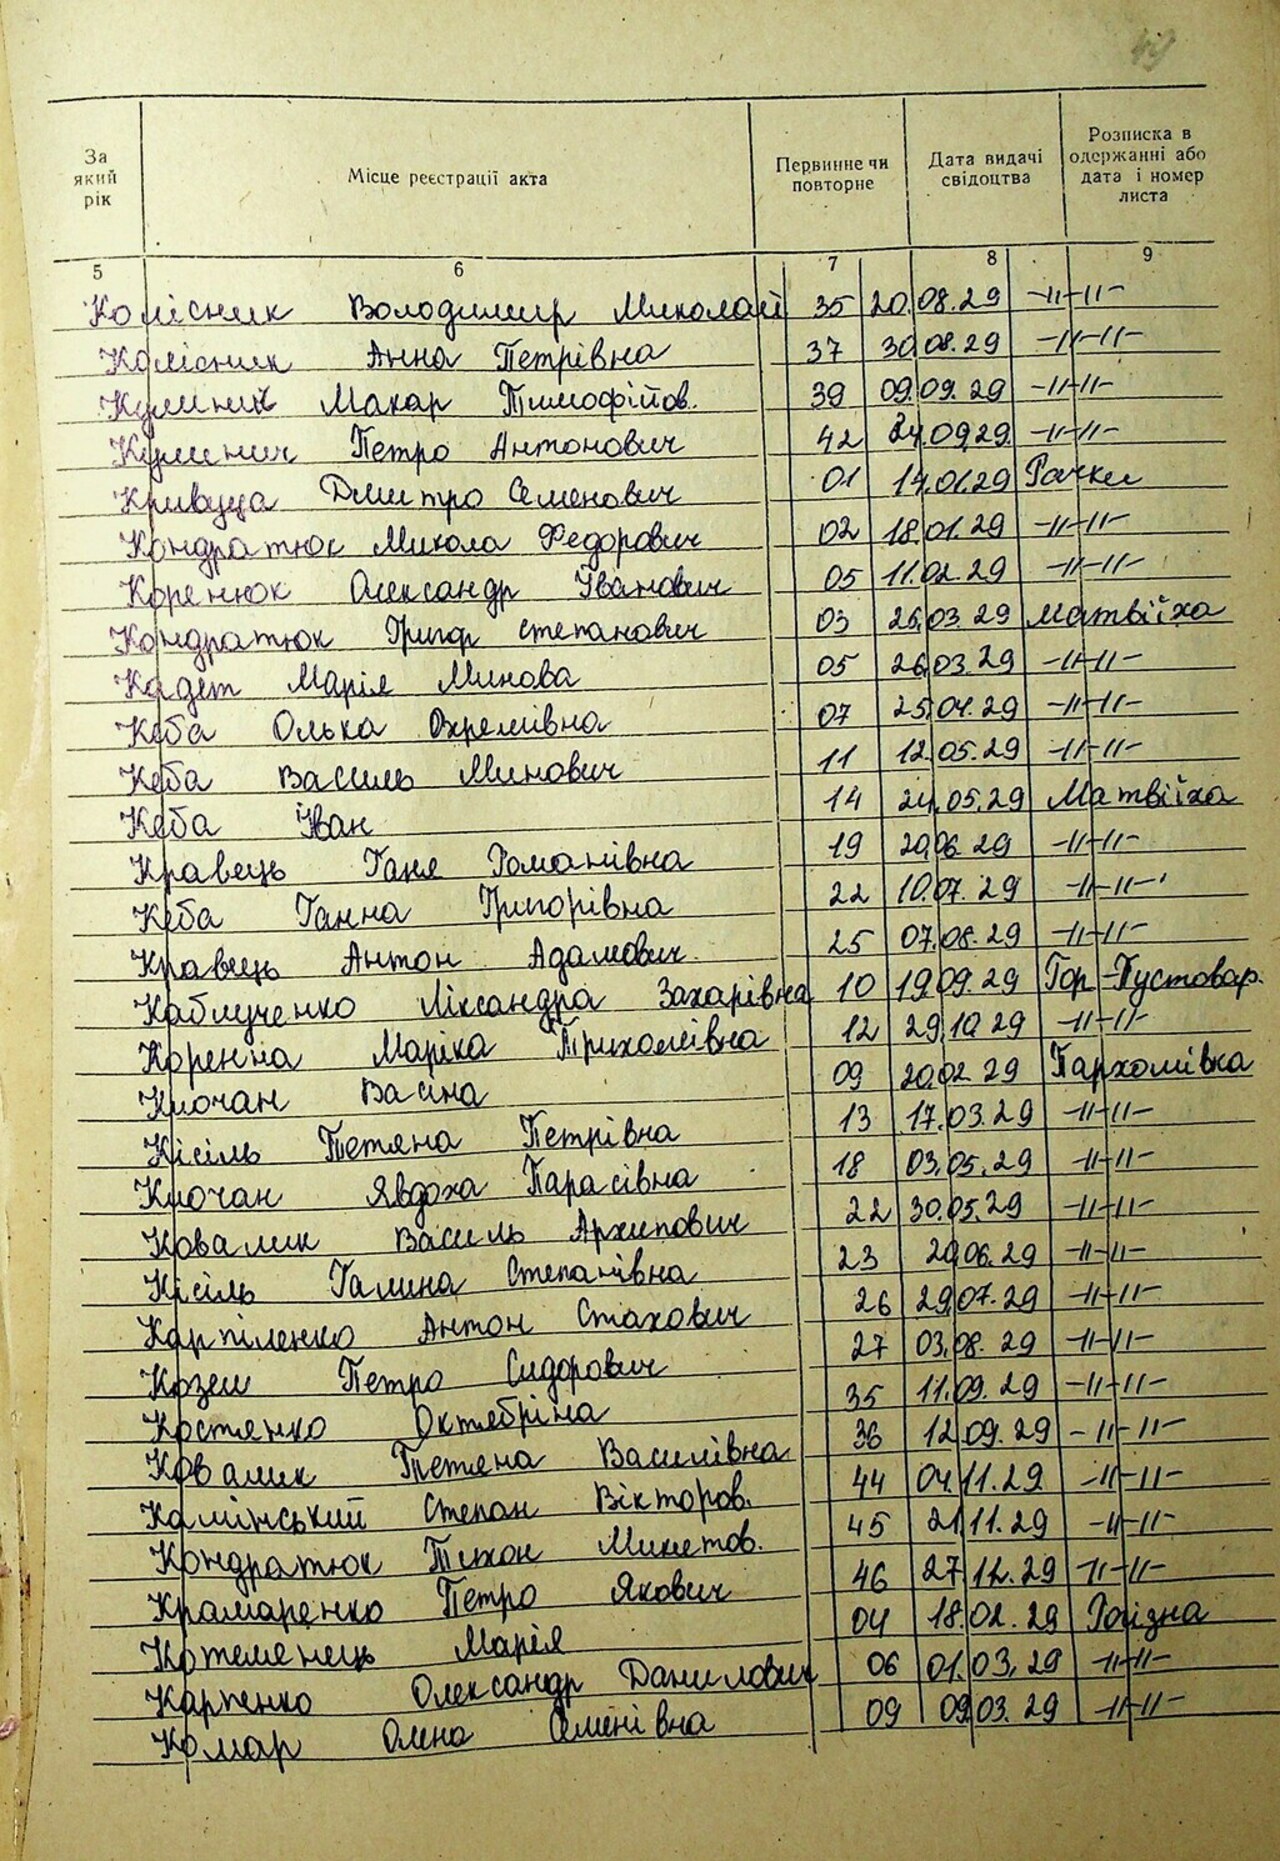 49
За який рік
Місце реєстрації акта
Первинне чи повторне
Дата видачі свідоцтва
Розписка в одержанні або дата і номер листа
5 6 7 8 9
Колісник Володимир Миколай 35 20.08.29 -11-11-
Колісник Анна Петрівна 37 30.08.29 -11-11-
Кушний Макар Тимофійов. 39 09.09.29 -11-11-
Кушнич Петро Антонович 42 24.09.29 -11-11-
Кривуца Дмитро Семенович 01 14.01.29 Рачки
Кондратюк Микола Федорович 02 18.01.29 -11-11-
Коренюк Олександр Іванович 05 11.02.29 -11-11-
Кондратюк Григор Степанович 03 26.03.29 Матвіїха
Кадет Марія Минова 05 26.03.29 -11-11-
Кеба Олька Охремівна 07 25.04.29 -11-11-
Кеба Василь Минович 11 12.05.29 -11-11-
Кеба Іван 14 24.05.29 Матвіїха
Кравець Ганя Романівна 19 20.06.29 -11-11-
Кеба Ганна Григорівна 22 10.07.29 -11-11-
Кравець Антон Адамович 25 07.08.29 -11-11-
Каблученко Ліксандра Захарівна 10 19.09.29 Гор-Пустовар.
Коренна Маріка Трихомівна 12 29.10.29 -11-11-
Клочан Васина 09 20.02.29 Пархомівка
Кісіль Тетяна Петрівна 13 17.03.29 -11-11-
Клочан Явдоха Парасівна 18 03.05.29 -11-11-
Ковалик Василь Архипович 22 30.05.29 -11-11-
Кісіль Галина Степанівна 23 20.06.29 -11-11-
Карпіленко Антон Стахович 26 29.07.29 -11-11-
Козем Петро Сидорович 27 03.08.29 -11-11-
Костенко Октябріна 35 11.09.29 -11-11-
Ковалик Тетяна Василівна 36 12.09.29 -11-11-
Камінський Степан Вікторов. 44 04.11.29 -11-11-
Кондратюк Тихон Микитов. 45 21.11.29 -11-11-
Крамаренко Петро Якович 46 27.12.29 -11-11-
Котеменець Марія 04 18.02.29
Карпенко Олександр Данилович 06 01.03.29 -11-11-
Комар Олена Семенівна 09 09.03.29 -11-11-